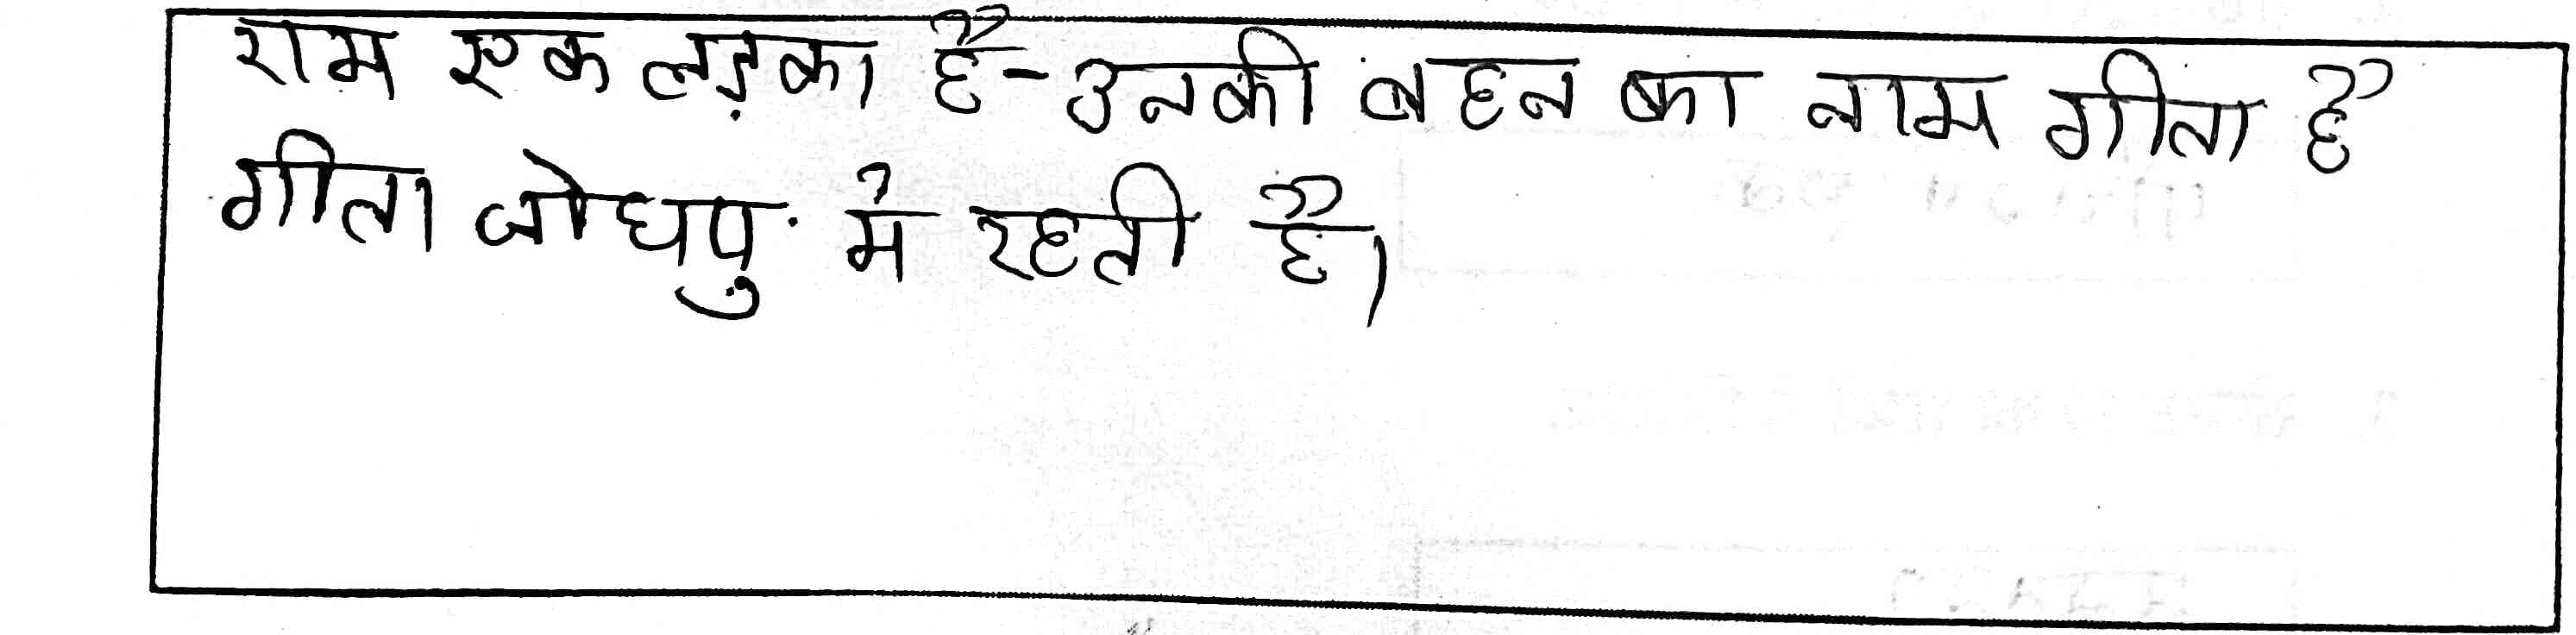 राम एक लड़का है-उनकी बहन का नाम गीता है
गीता जोधपु में रहती है।